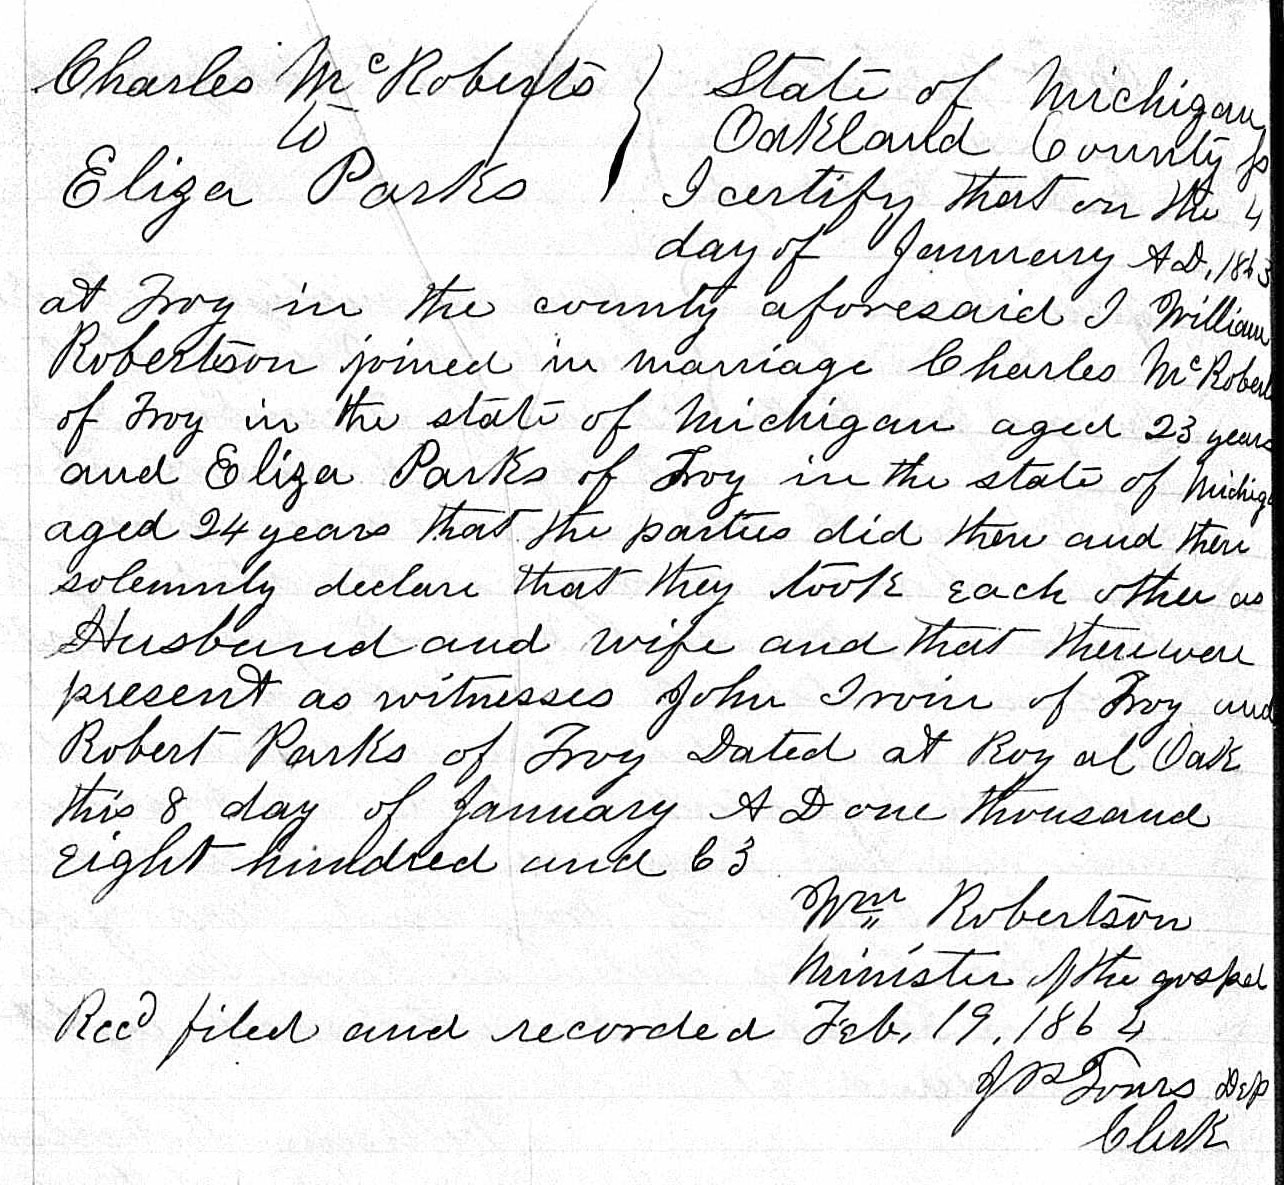 Charles McRoberts
to
Eliza Parks
State of Michigan
Oakland County ss
I certify that on the 4
day of January A D, 1863
at Troy in the county aforesaid I William
Robertson joined in marriage Charles McRobert
of Troy in the state of Michigan aged 23 years
and Eliza Parks of Troy in the state of Michiga
aged 24 years that the parties did then and there
solemnly declare that they took each other as
Husband and wife and that there were
present as witnesses John Irvin of Troy and
Robert Parks of Troy Dated at Royal Oak
this 8 day of January A D one thousand
Eight hundred and 63
Wm Robertson
Minister of the gospel
Recd filed and recorded Feb, 19, 1864
J P Dep
Clerk